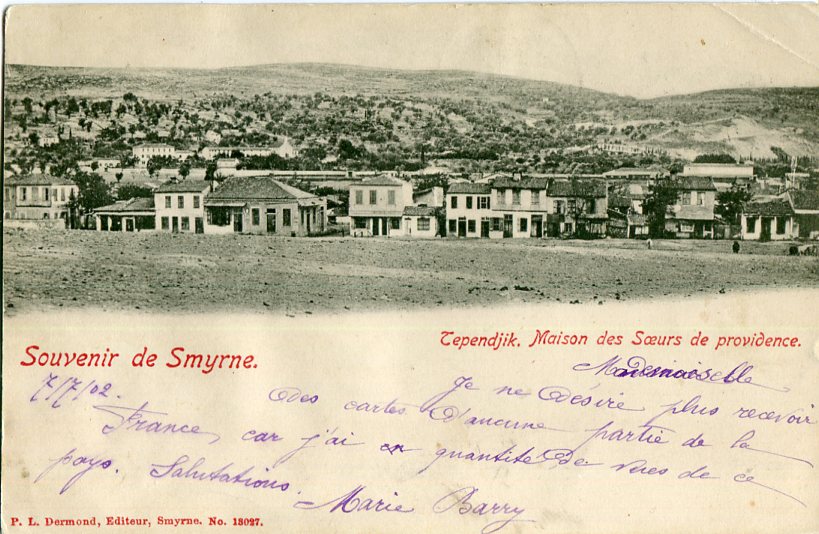 Tependjik. Maison des Sœurs de providence.
Souvenir de Smyrne.
Mademoiselle
7/7/02.
Je ne désire plus recevoir
des cartes d'aucune partie de la
France, car j'ai en quantité de vues de ce
pays. Salutations.
Marie Barry
P. L. Dermond, Editeur, Smyrne. No. 13027.